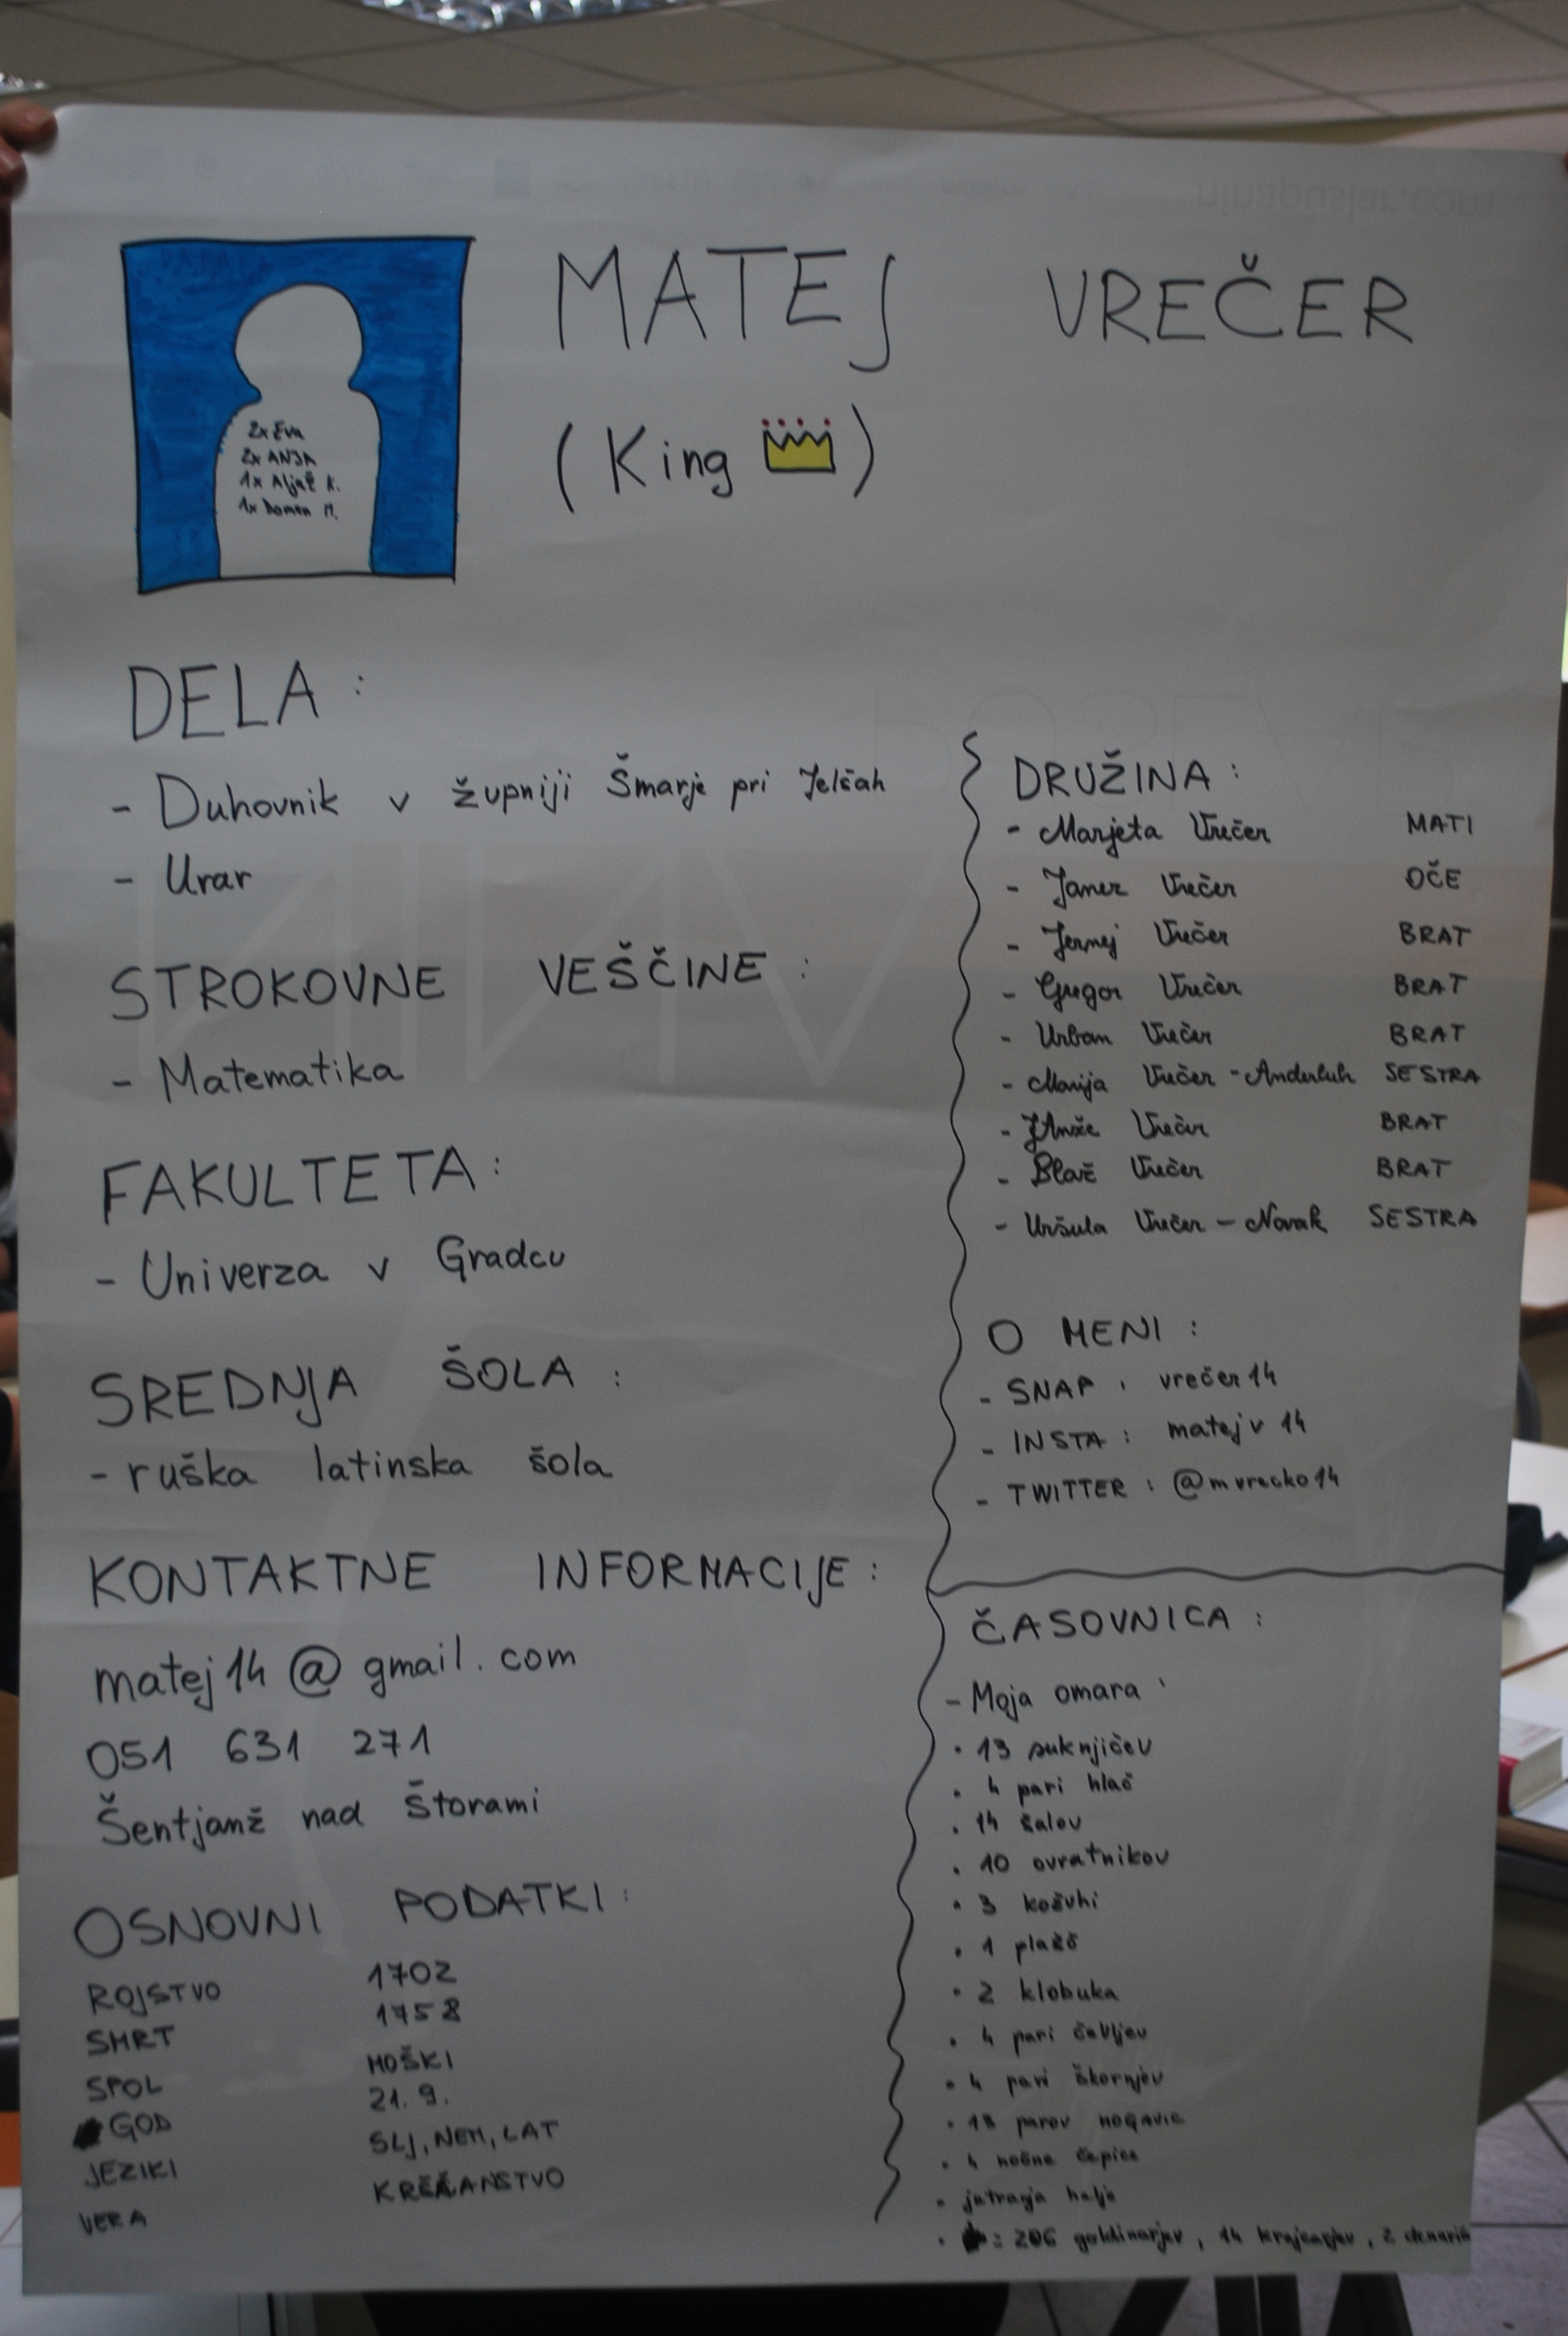 MATEJ VREČER
(King)
2x Eva
2x ANJA
1x Aljaž K.
1x Domen M.
DELA:
- Duhovnik v župniji Šmarje pri Jelšah
- Urar
STROKOVNE VEŠČINE:
- Matematika
FAKULTETA:
- Univerza v Gradcu
SREDNJA ŠOLA:
- ruška latinska šola
KONTAKTNE INFORMACIJE:
matej14@gmail.com
051 631 271
Šentjanž nad Štorami
OSNOVNI PODATKI:
ROJSTVO 1702
SMRT 1758
SPOL MOŠKI
GOD 21. 9.
JEZIKI SLJ, NEM, LAT
VERA KRŠČANSTVO
DRUŽINA:
- Marjeta Vrečer MATI
- Janez Vrečer OČE
- Jernej Vrečer BRAT
- Gregor Vrečer BRAT
- Urban Vrečer BRAT
- Marija Vrečer - Anderluh SESTRA
- Anže Vrečer BRAT
- Blaž Vrečer BRAT
- Uršula Vrečer - Novak SESTRA
O MENI:
- SNAP: vrečer14
- INSTA: matejv14
- TWITTER: @mvrecko14
ČASOVNICA:
- Moja omara
• 13 suknjičev
• 4 pari hlač
• 14 šalov
• 10 ovratnikov
• 3 kožuhi
• 1 plašč
• 2 klobuka
• 4 pari čevljev
• 4 pari škornjev
• parov nogavic
• 4 nočne čepice
• jutranja halja
• = 206 goldinarjev, 14 krajcarjev, 2 denariča